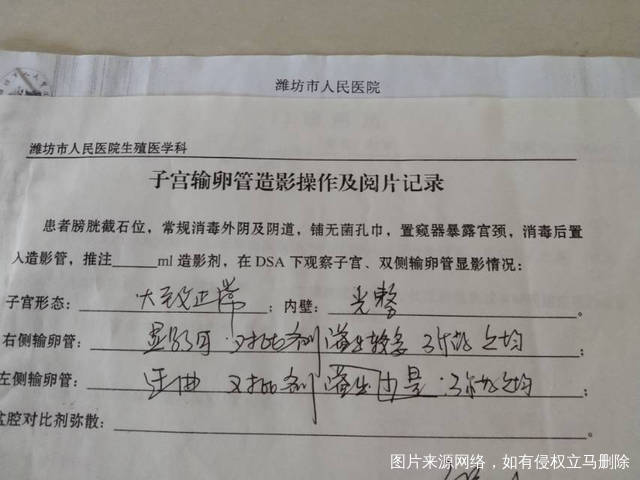 潍坊市人民医院
潍坊市人民医院生殖医学科
子宫输卵管造影操作及阅片记录
患者膀胱截石位，常规消毒外阴及阴道，铺无菌孔巾，置窥器暴露宫颈，消毒后置
入造影管，推注______ml 造影剂，在 DSA 下观察子宫、双侧输卵管显影情况：
子宫形态：大致正常；内壁：光整。
右侧输卵管：显影可 对比剂溢出较多 弥散欠均；
左侧输卵管：迂曲 对比剂溢出少量 弥散欠均；
盆腔对比剂弥散：。
图片来源网络，如有侵权立马删除